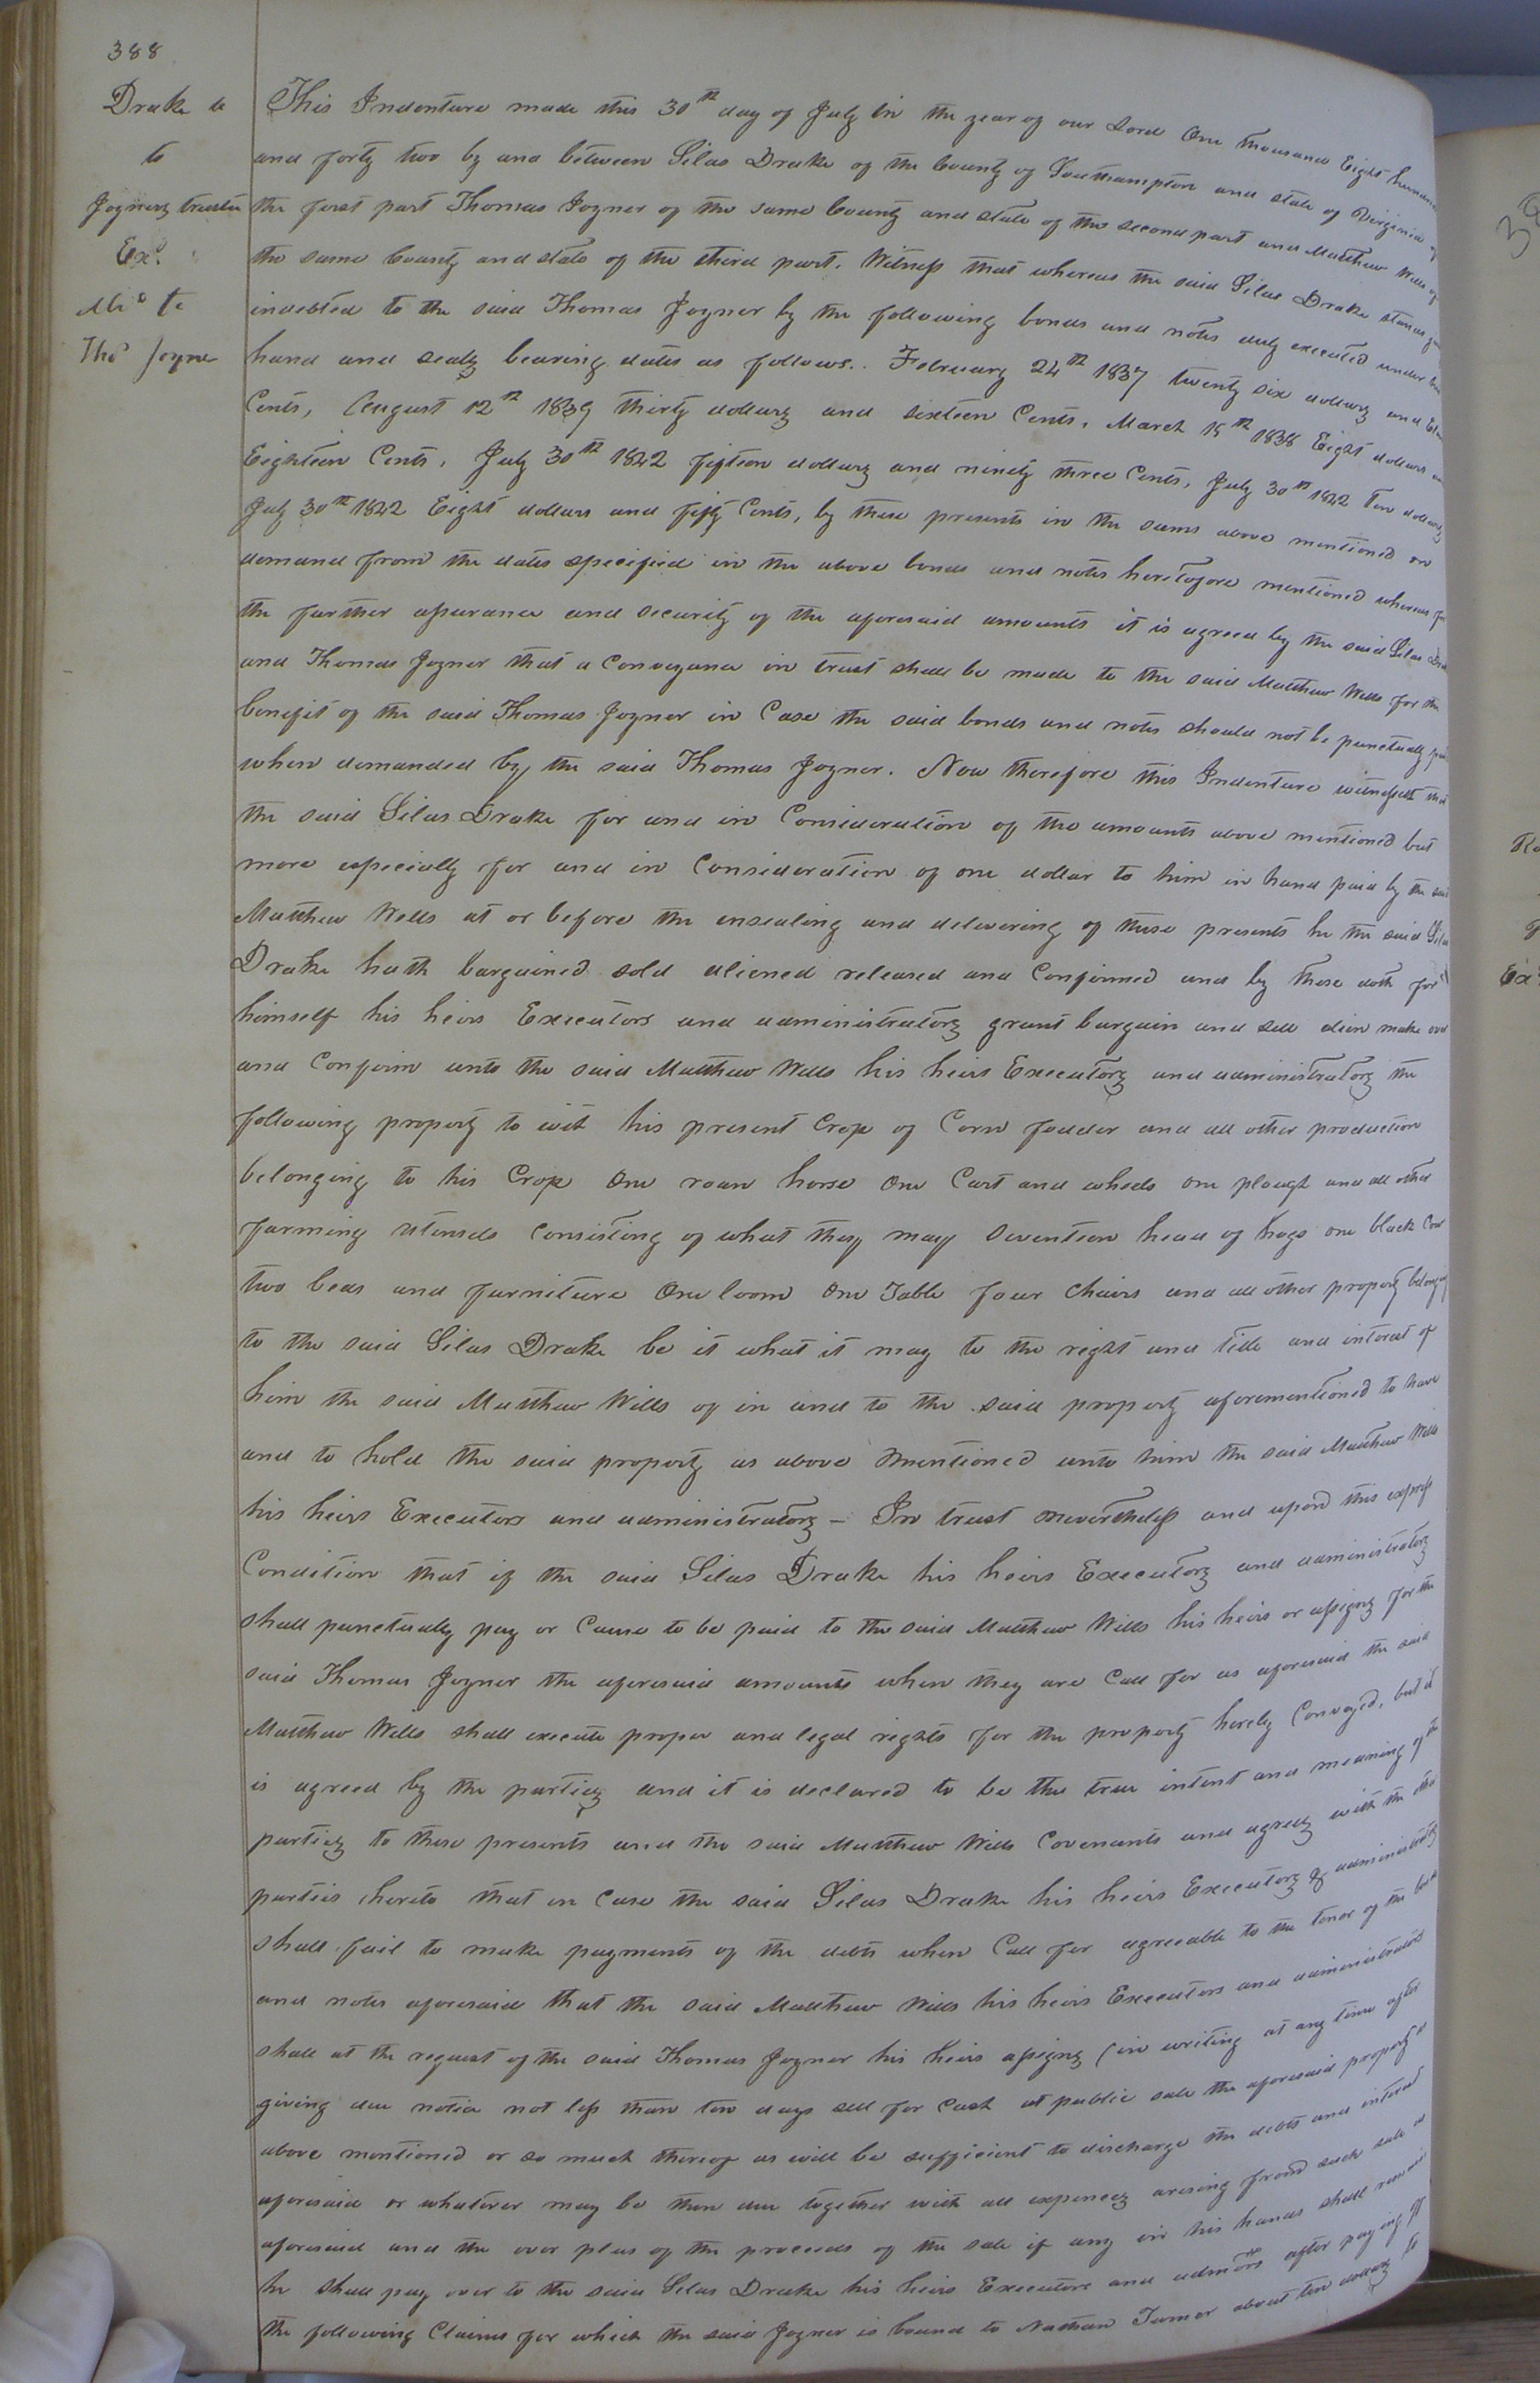 388
Drake
to
Joyners trustee
Exd.
Thos Joyner
This Indenture made this 30th day of July in the year of our Lord One thousand Eight hundred
and forty two by and between Silas Drake of the County of Southampton and state of Virginia of
the first part Thomas Joyner of the same County and state of the second part and Matthew Wills of
the same County and state of the third part. Witness that whereas the said Silas Drake stands
indebted to the said Thomas Joyner by the following bonds and notes duly executed under
hand and sealg bearing dates as follows.. February 24th 1837 twenty six dollarg and
Cents, August 12th 1839 thirty dollarg and sixteen Cents, March 15th 1838 Eight dollars
Eighteen Cents, July 30th 1842 fifteen dollarg and ninety three Cents, July 30th 1842 Ten dollarg
July 30th 1842 Eight dollars and fifty Cents, by these presents in the sums above mentioned on
demand from the dates specified in the above bonds and notes heretofore mentioned whereas for
the further assurance and security of the aforesaid amounts it is agreed by the said Silas
and Thomas Joyner that a Conveyance in trust shall be made to the said Matthew Wills for the
benefit of the said Thomas Joyner in Case the said bonds and notes should not be punctually
when demanded by the said Thomas Joyner. Now therefore this Indenture witnesseth that
the said Silas Drake for and in Consideration of the amounts above mentioned but
more especially for and in Consideration of one dollar to him in hand paid by the said
Matthew Wills at or before the ensealing and delivering of these presents he the said Silas
Drake hath bargained sold aliened released and Confirmed and by these doth for
himself his heirs Executors and administratorg grant bargain and sell alien make over
and Confirm unto the said Matthew Wills his heirs Executorg and administratorg the
following property to wit his present Crop of Corn fodder and all other production
belonging to his Crop One roan horse One Cart and wheels one plough and all other
farming utensils Consisting of what they may Seventeen head of hogs one black Cow
two beds and furniture One loom One Table four Chairs and all other property belonging
to the said Silas Drake be it what it may to the right and title and interest of
him the said Matthew Wills of in and to the said property aforementioned to have
and to hold the said property as above mentioned unto him the said Matthew Wills
his heirs Executors and administratorg – In trust nevertheless and upon this express
Condition that if the said Silas Drake his heirs Executorg and administratorg
shall punctually pay or Cause to be paid to the said Matthew Wills his heirs or assigng for the
said Thomas Joyner the aforesaid amounts when they are Call for as aforesaid the said
Matthew Wills shall execute proper and legal rights for the property hereby Conveyed, but it
is agreed by the partieg and it is declared to be the true intent and meaning of the
partieg to these presents and the said Matthew Wills Covenants and agreeg with the other
parties hereto that in Case the said Silas Drake his heirs Executorg & administratorg
shall fail to make payments of the debts when Call for agreeable to the tenor of the
and notes aforesaid that the said Matthew Wills his heirs Executors and administrators
shall at the request of the said Thomas Joyner his heirs assigng (in writing at any time after
giving due notice not less than ten days sell for Cash at public sale the aforesaid property
above mentioned or so much thereof as will be sufficient to discharge the debts and interest
aforesaid or whatever may be then due together with all expenceg arising from such sale
aforesaid and the over plus of the proceeds of the sale if any in his hands shall remain
he shall pay over to the said Silas Drake his heirs Executors and admors after paying off
the following Claims for which the said Joyner is bound to Nathan Turner about ten dollarg